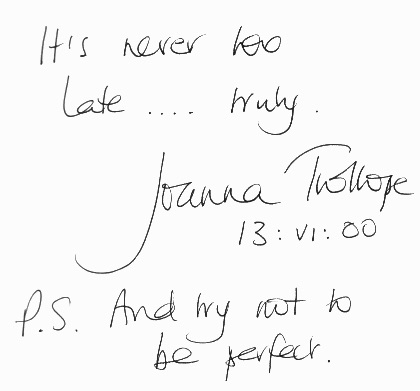 It's never too
late .... truly.
Joanna Trollope
13 : VI : 00
P.S. And try not to
be perfect.